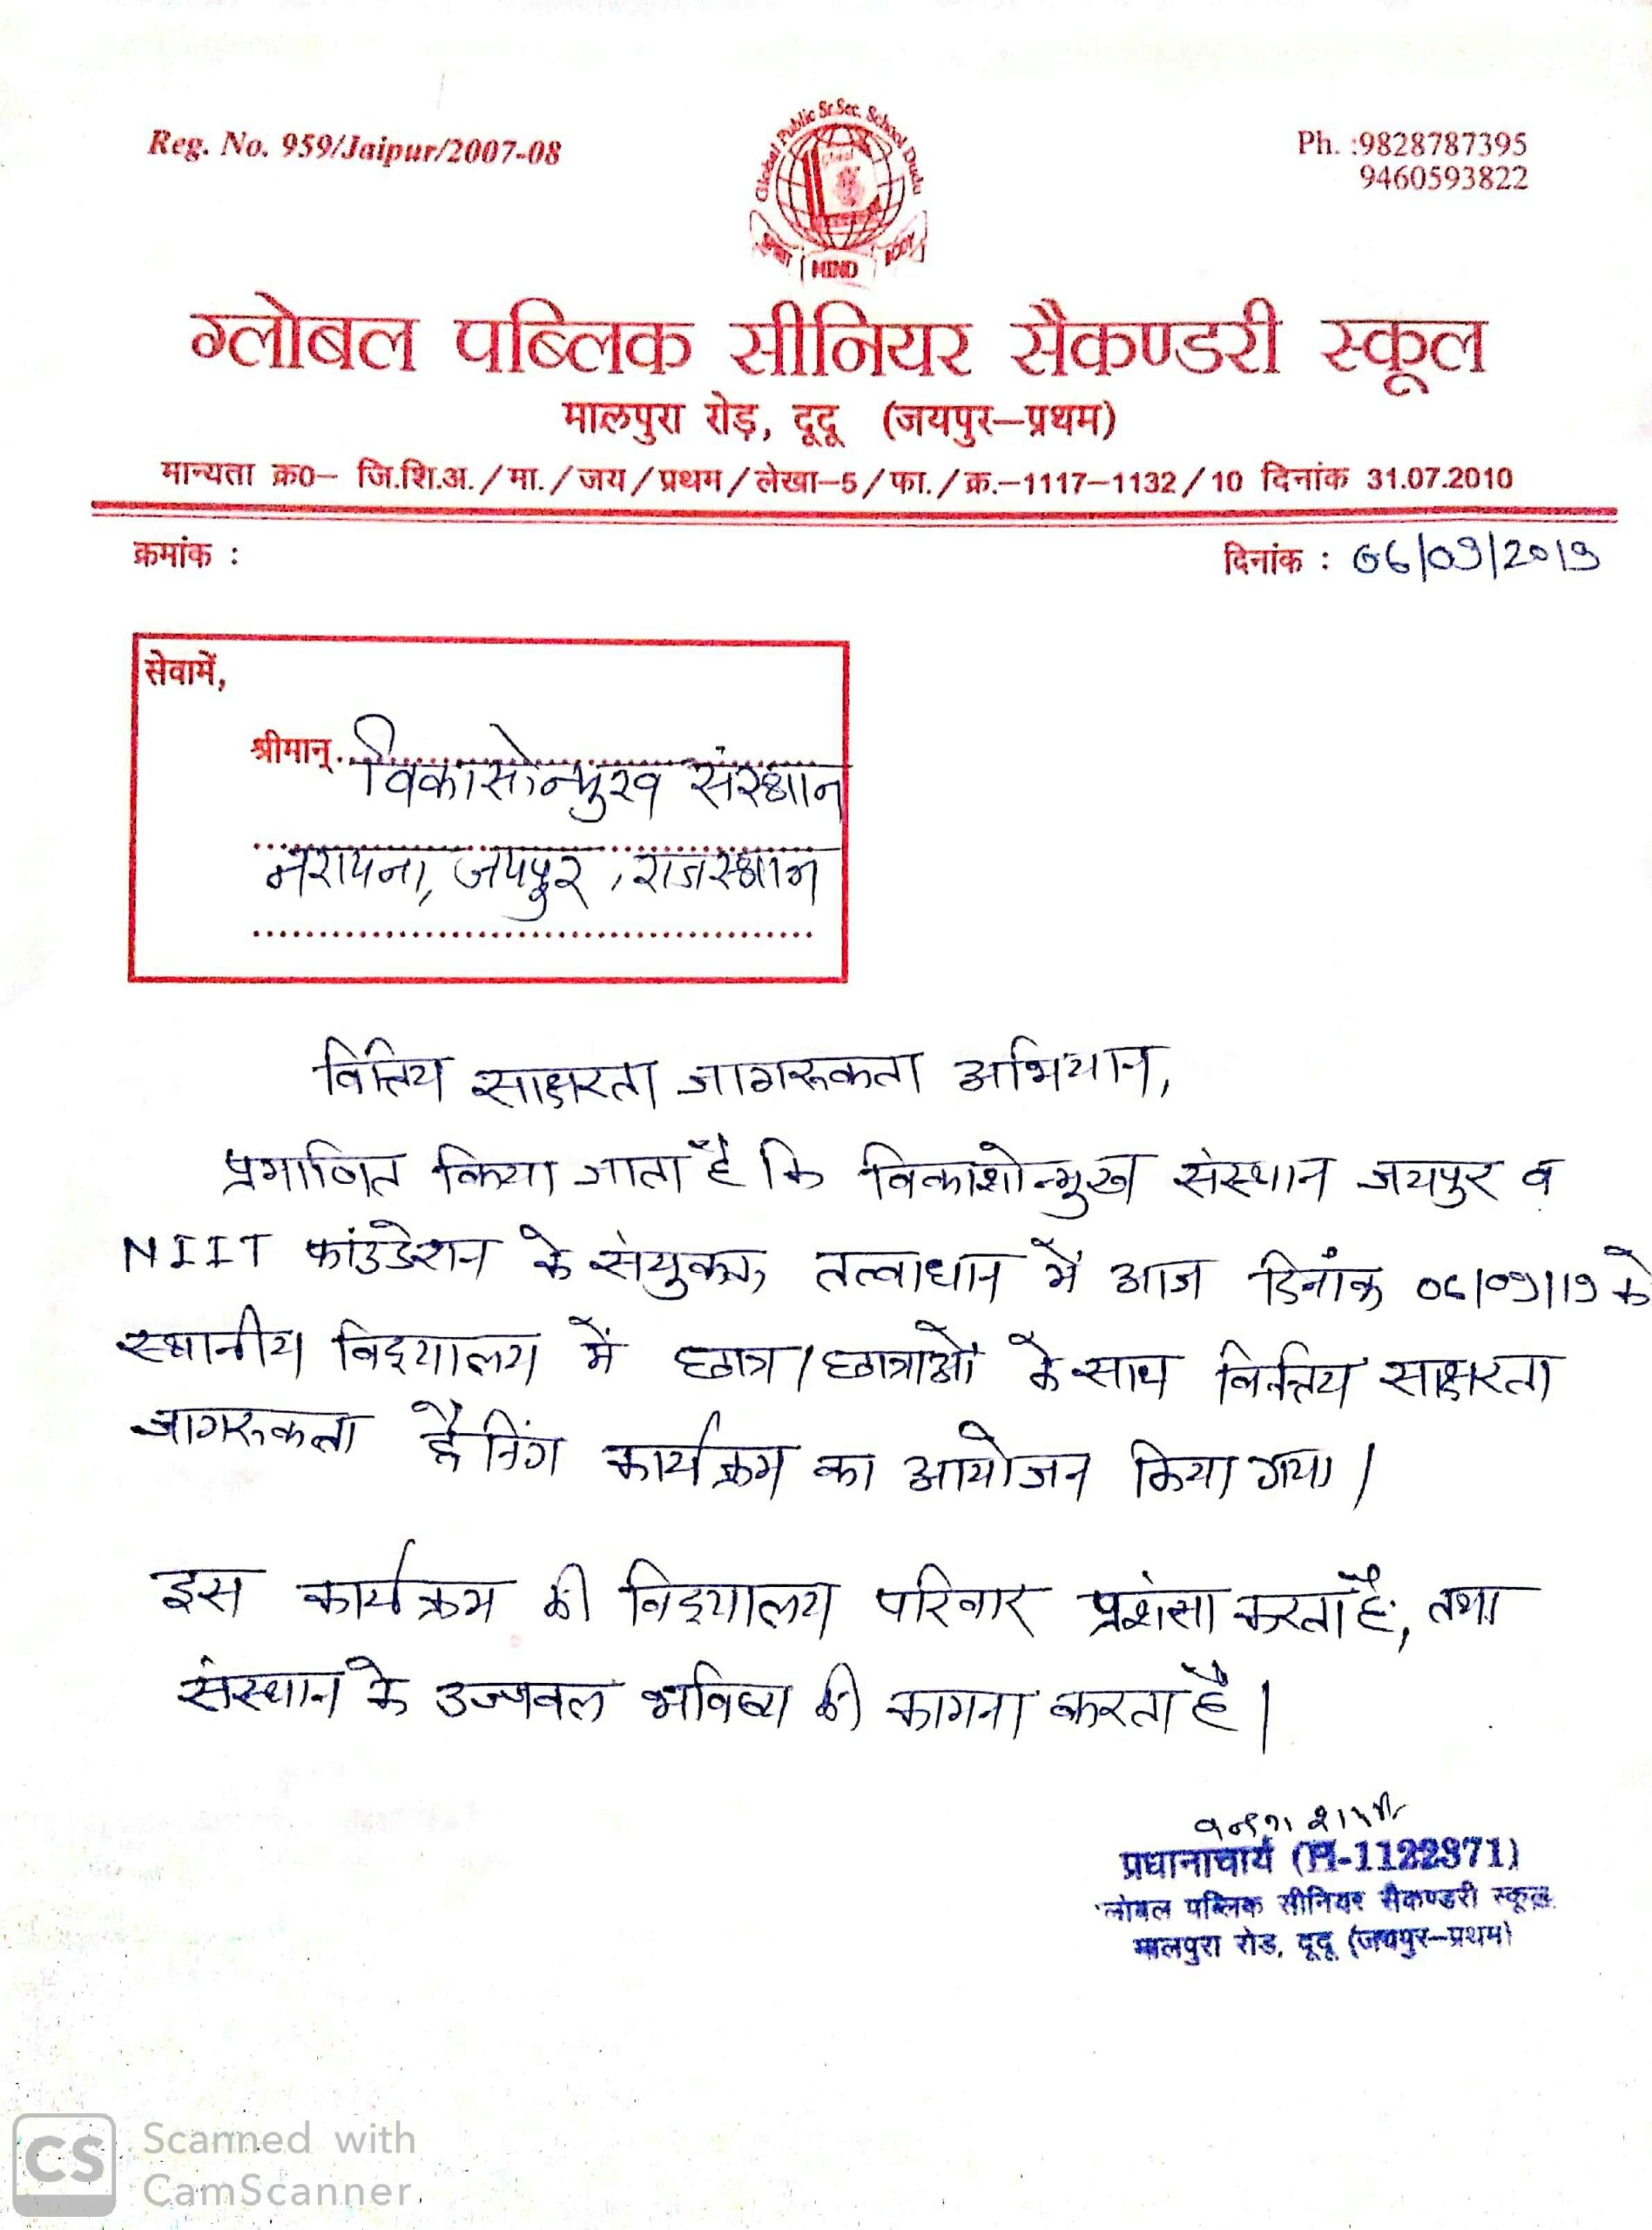 Reg. No. 959/Jaipur/2007-08
Global Public Sr.Sec. School Dudu
MIND BODY
Ph. :9828787395
9460593822
ग्लोबल पब्लिक सीनियर सैकण्डरी स्कूल
मालपुरा रोड़, दूदू (जयपुर–प्रथम)
मान्यता क्र0– जि.शि.अ./मा./जय/प्रथम/लेखा–5/फा./क्र.–1117–1132/10 दिनांक 31.07.2010
क्रमांक :
दिनांक : 06/09/2019
सेवामें,
श्रीमान् विकासोन्मुख संस्थान
नरायना, जयपुर, राजस्थान
वित्तिय साक्षरता जागरूकता अभियान,
प्रमाणित किया जाता है कि विकाशोन्मुख संस्थान जयपुर व
NIIT फांउडेशन के संयुक्त तत्वाधान में आज दिनांक 06/09/19 को
स्थानीय विद्यालय में छात्र/छात्राओं के साथ वित्तिय साक्षरता
जागरूकता ट्रैनिंग कार्यक्रम का आयोजन किया गया।
इस कार्यक्रम की विद्यालय परिवार प्रशंसा करता है, तथा
संस्थान के उज्जवल भविष्य की कामना करता है।
प्रधानाचार्य (H-1122871)
ग्लोबल पब्लिक सीनियर सैकण्डरी स्कूल
मालपुरा रोड, दूदू (जयपुर–प्रथम)
CS Scanned with
CamScanner